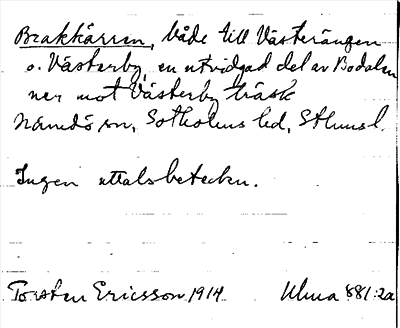 Brakkärren, både till Västerängen
o. Västerby, en utvidgad del av Bodalen
ner mot Västerby träsk
Nämdö sn, Sotholms hd, Sthmsl.
Ingen uttalsbeteckn.
Torsten Ericsson 1914 Ulma 881:2a